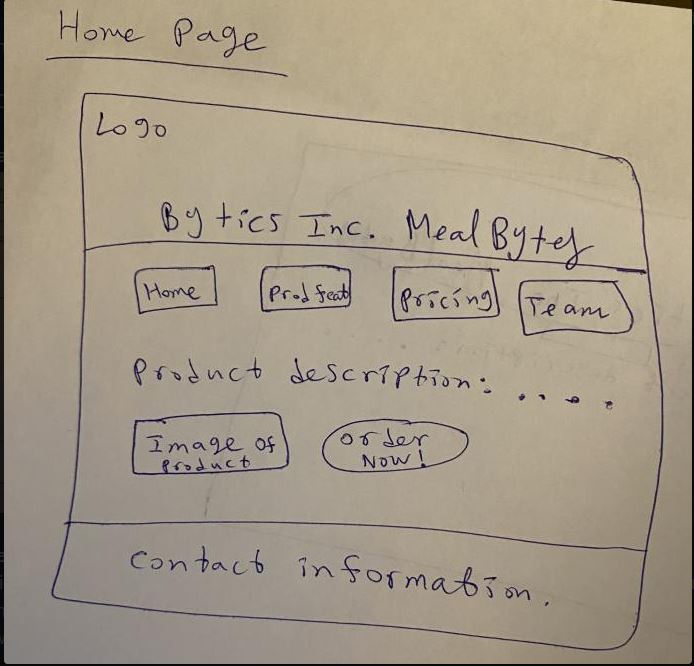 Home Page
Logo
Bytics Inc. Meal Bytes
Home Prod feat Pricing Team
Product description: ....
Image of
Product
Order
Now!
Contact information.